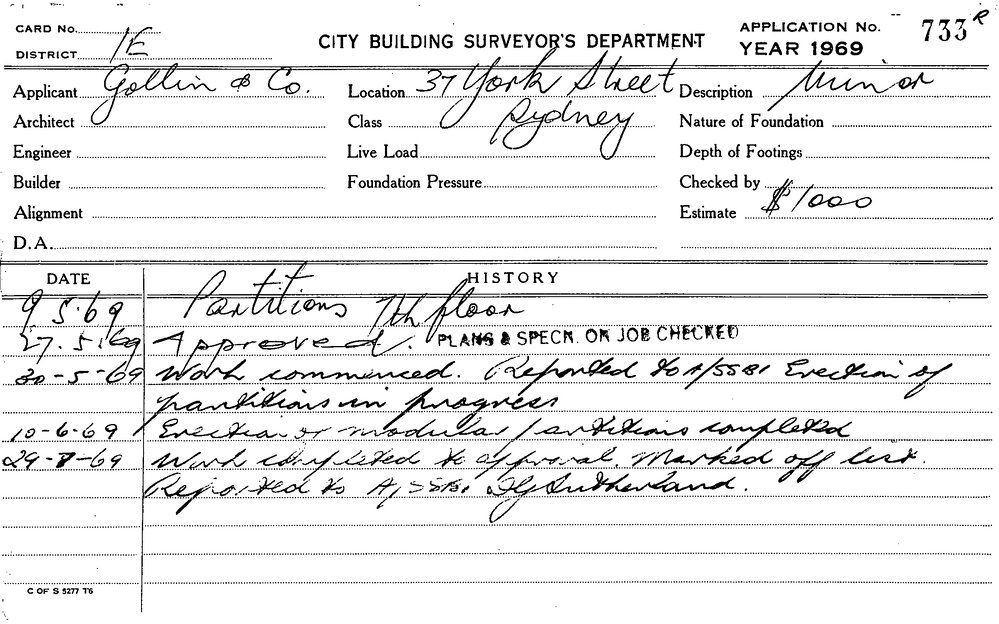 CARD No.
DISTRICT 1E
CITY BUILDING SURVEYOR'S DEPARTMENT
APPLICATION No. 733 R
YEAR 1969
Applicant Gollin & Co. Location 37 York Street Description Minor
Architect Class Sydney Nature of Foundation
Engineer Live Load Depth of Footings
Builder Foundation Pressure Checked by
Alignment Estimate $1000
D.A.
DATE HISTORY
9.5.69 Partitions 7th floor
27.5.69 Approved. PLANS & SPECN. ON JOB CHECKED
30-5-69 Work commenced. Reported to A/SSBI Erection of
partitions in progress
10-6-69 Erection of modular partitions completed
29-8-69 Work completed to approval. Marked off list.
Reported to A/SSBI. Sutherland.
C OF S 5277 T6